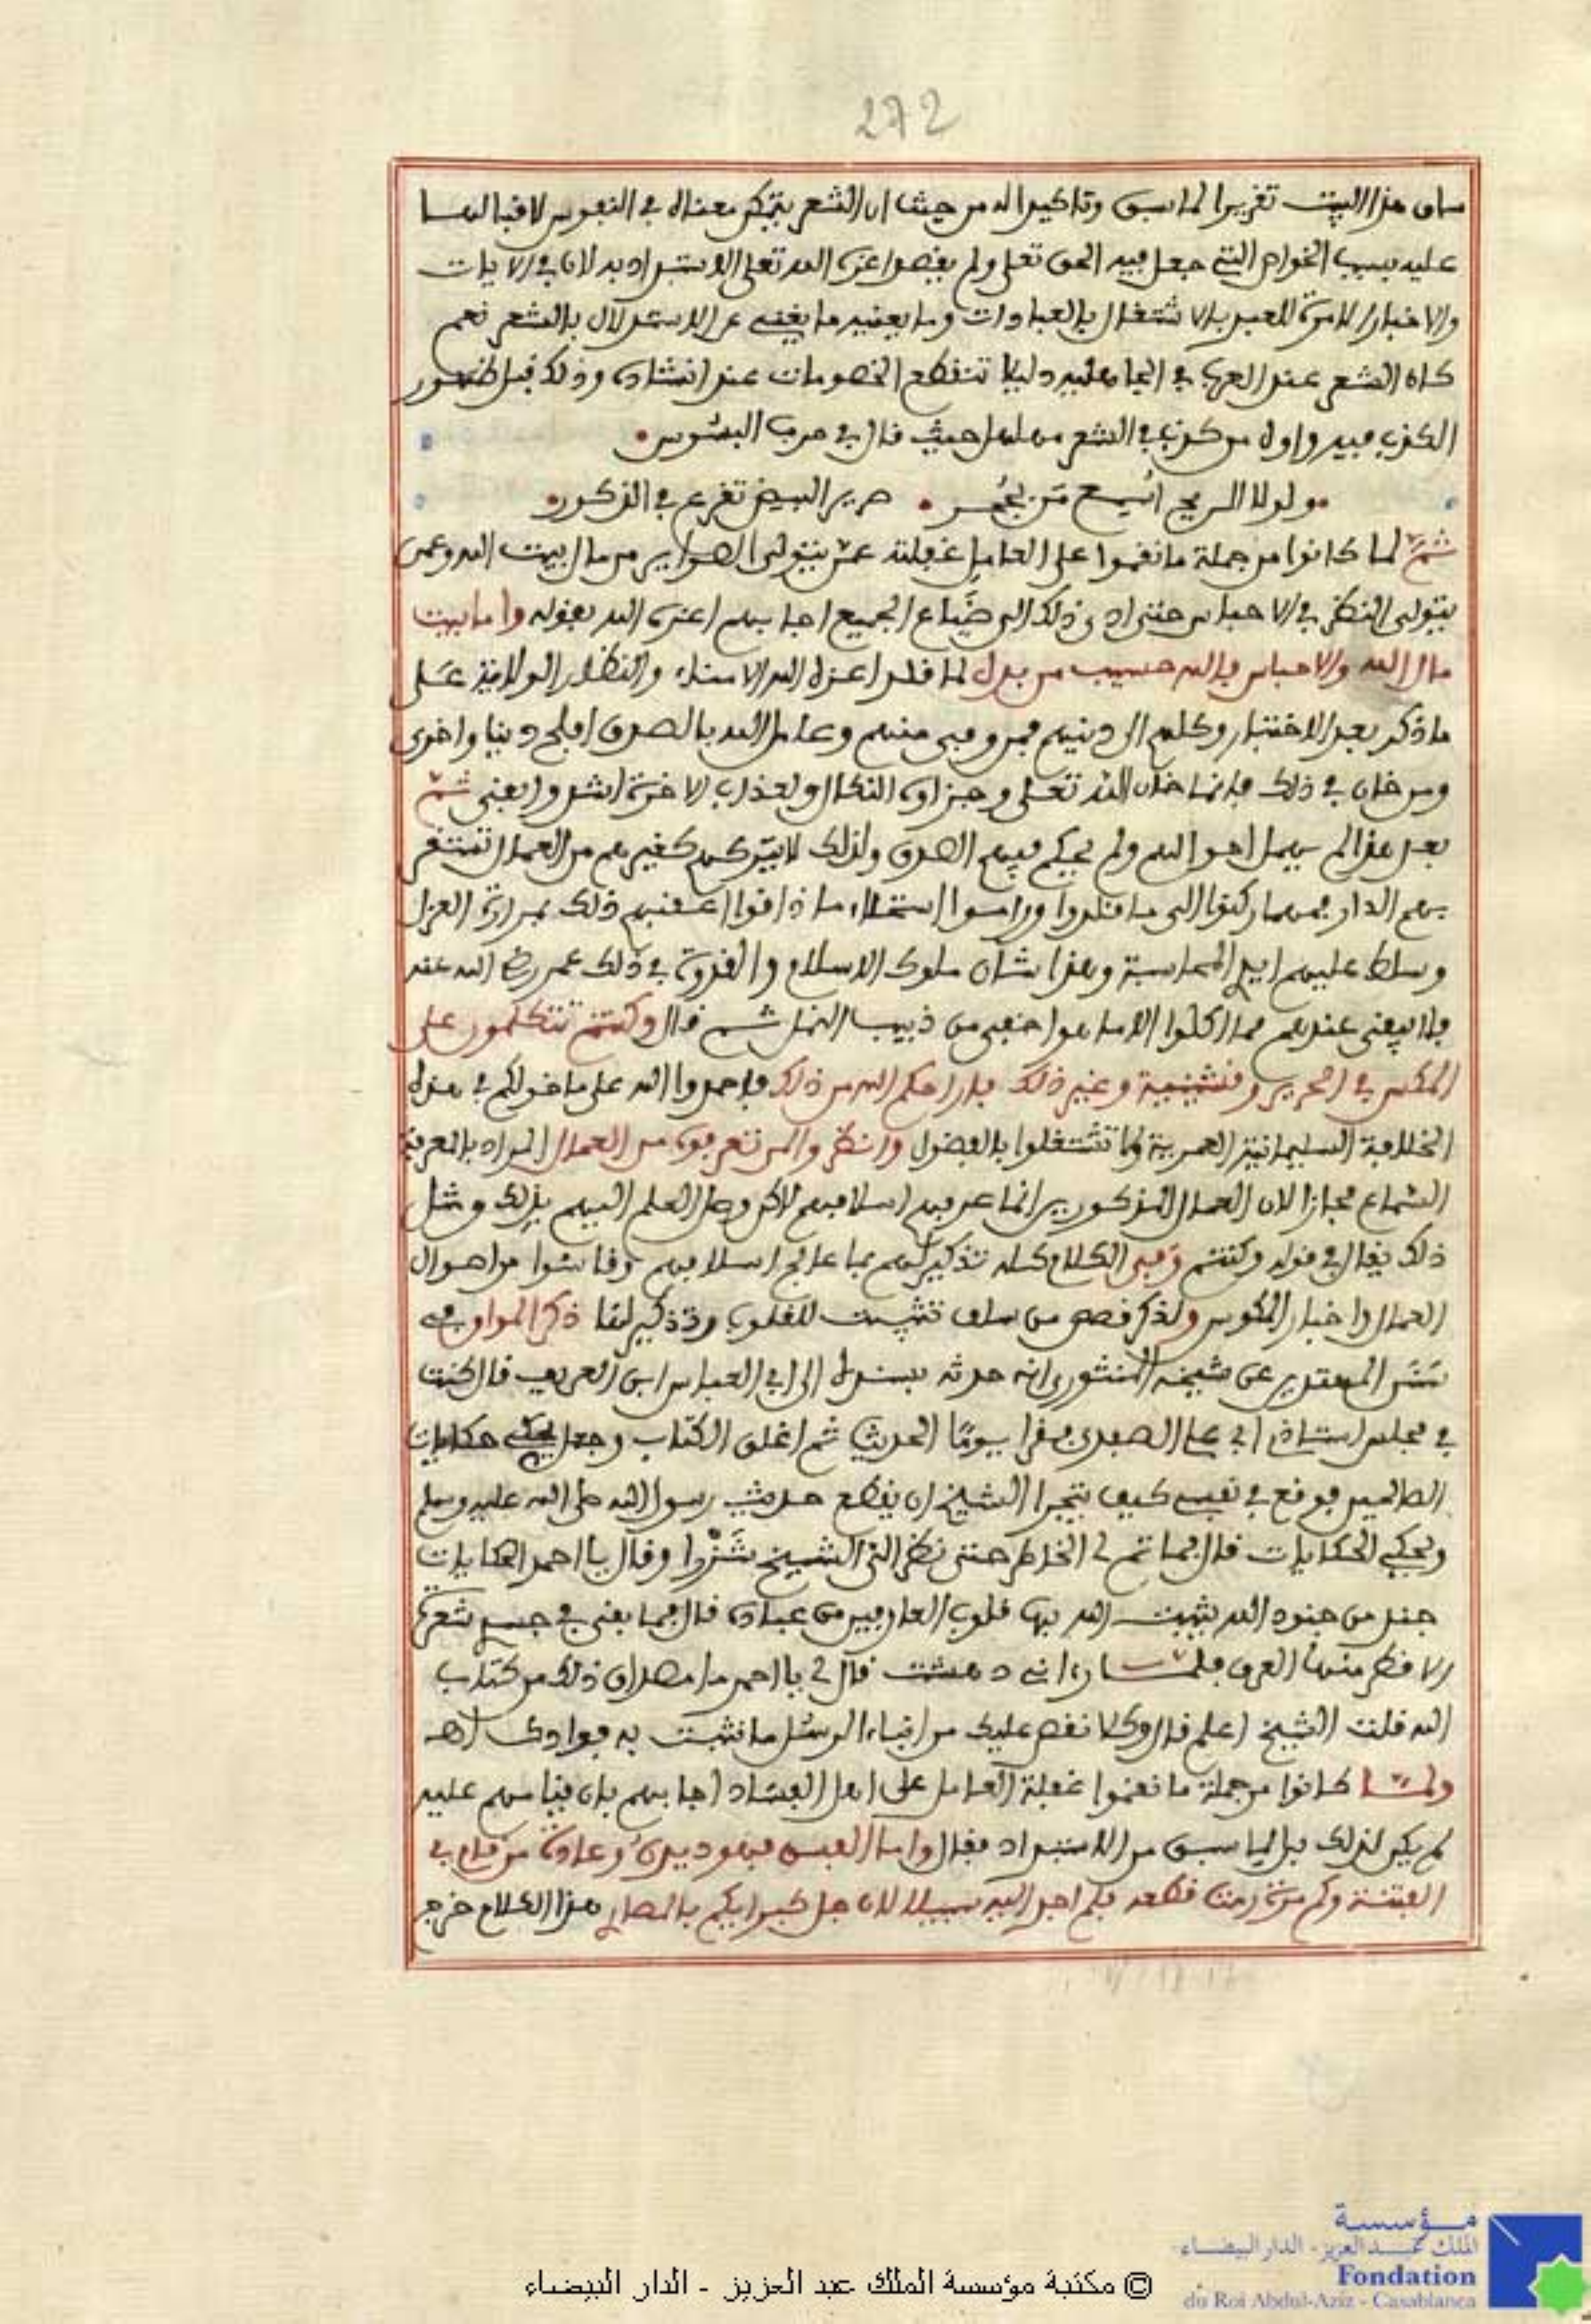 272
ساق هذا البيت تقريرا لما سبق وتاكيدا له من حيث ان الشعر يتمكن معناه في النفوس لاقبالها
عليه بسبب الخواص التي جعل فيه الحق تعلى ولم يقصد اعزه الله تعلى الاستبداد به لان في الايات
والاخبار الامرة للعبد بالاشتغال بالعبادات وما يعنيه ما يغني عن الاستدلال بالشعر نعم
كان الشعر عند العرب في الجاهلية دليلا تنقطع الخصومات عند انشاده وذلك قبل ظهور
الكذب فيه واول من كذب في الشعر مهلهل حيث قال في حرب البسوس
ولولا الريح اسمع من بحجر صرير البيض تقرع في الذكور
ثم لما كانوا من جملة ما نقموا على العامل غفلته عمن يتولى الصواير من مال بيت الله وعمن
يتولى النظر في الاحباس حتى ادى ذلك الى ضياع الجميع اجابهم اعزه الله بقوله واما بيت
مال الله والاحباس فالله حسيب من بدل لما قلد اعزه الله الامناء والنظار الولاية على
ما ذكر بعد الاختبار وكلهم الى دينهم فمن وفى منهم وعامل الله بالصدق افلح دنيا واخرى
ومن خان في ذلك فانما خان الله تعلى وجزاوه النكال ولعذاب الاخرة اشد وابقى ثم
بعد هذا لم يهمل احوالهم ولم يحكم فيهم الهوى ولذلك لا يتركهم كغيرهم من العمال تستقر
بهم الدار فمهما ركنوا الى ما قلدوا وراموا استحلاء ما ذاقوا اعقبهم ذلك بمرارة العزل
وسلط عليهم ايدي المحاسبة وهذا شان ملوك الاسلام والقدوة في ذلك عمر رضي الله عنه
فلا يبقى عندهم مما اكلوا الا ما هو اخفى من ذبيب النمل ثم قال وكنتم تتكلمون على
المكس في الحرير وقشينية وغير ذلك فاراحكم الله من ذلك فاحمدوا الله على ما خولكم في هذه
الخلافة السليمانية العمرية ولا تشتغلوا بالفضول وانظروا لمن تعرفون من العمال المراد بالمعرفة
السماع مجازا لان العمال المذكورين انما عرفهم اسلافهم لاكن وصل العلم اليهم بذلك ومثل
ذلك يقال في قوله وكنتم وفي الكلام كله تذكير لهم بما عالج اسلافهم وقاسوا من احوال
العمال واخبار المكوس ولذكر قصص من سلف تثبيت للقلوب وتذكير لها ذكر المواق في
سنن المهتدين عن شيخه المنثوري انه حدثه بسنده الى ابي العباس ابن العريف قال كنت
في مجلس استاذي ابي علي الصدفي يقرا يوما الحديث ثم اغلق الكتاب وجعل يحكي حكايات
الصالحين فوقع في نفسي كيف يتجرا الشيخ ان يقطع حديث رسول الله صلى الله عليه وسلم
ويحكي الحكايات قال فما تم لي الخاطر حتى نظر الي الشيخ شزرا وقال يا احمد الحكايات
جند من جنود الله يثبت الله بها قلوب العارفين من عباده قال فما بقي في جسدي شعرة
الا قطر منها العرق فلما راءاني دهشت قال لي يا احمد ما مصداق ذلك من كتاب
الله قلت الشيخ اعلم قال وكلا نقص عليك من انباء الرسل ما نثبت به فوادك اهـ
ولما كانوا من جملة ما نقموا غفلة العامل على اهل الفساد اجابهم بان قيامهم عليه
لم يكن لذلك بل لما سبق من الاستبداد فقال واما الفبس فهو ديدن وعادة من قام في
الفتنة وكم مرة رمت قطعه فلم اجد اليه سبيلا لان جل كبرايكم هذا الكلام خرج
© مكتبة مؤسسة الملك عبد العزيز - الدار البيضاء
مؤسسة
الملك عبد العزيز - الدار البيضاء
Fondation
du Roi Abdul-Aziz - Casablanca